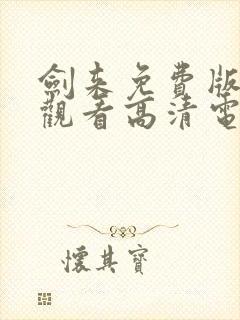 劍來免費版
觀看高清電
懷其寶